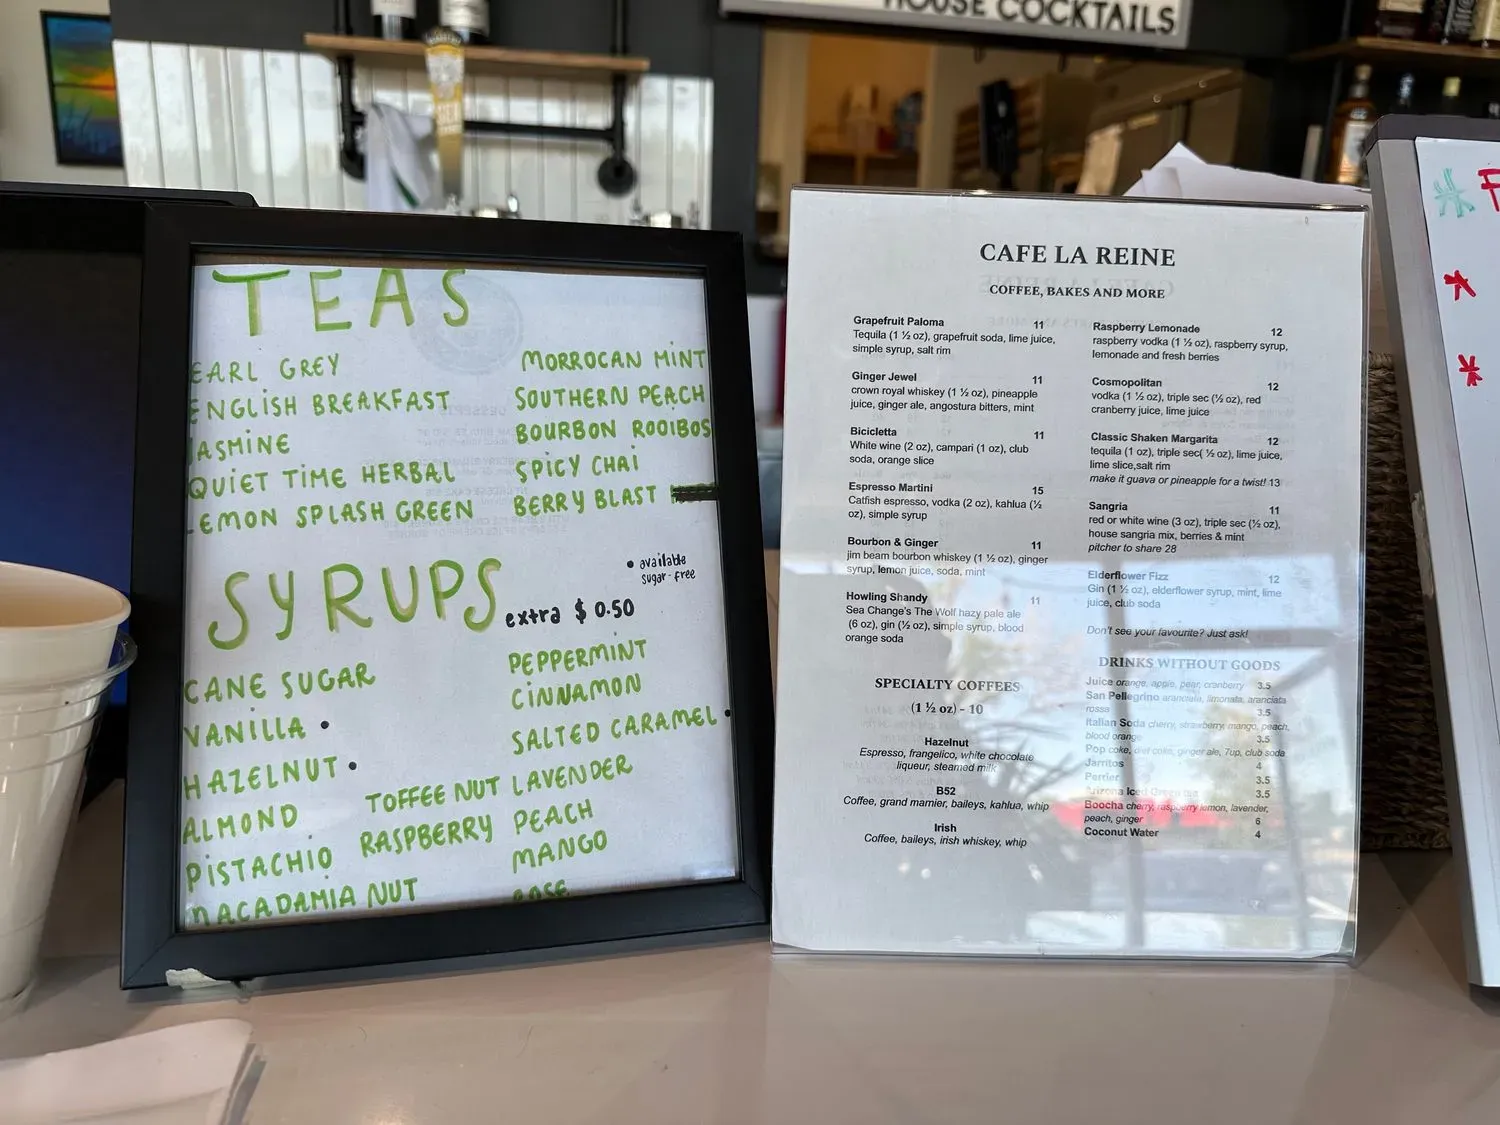 HOUSE COCKTAILS
TEAS
EARL GREY
ENGLISH BREAKFAST
JASMINE
QUIET TIME HERBAL
LEMON SPLASH GREEN
MORROCAN MINT
SOUTHERN PEACH
BOURBON ROOIBOS
SPICY CHAI
BERRY BLAST
SYRUPS
extra $0.50
• available
sugar-free
CANE SUGAR
VANILLA •
HAZELNUT •
ALMOND
PISTACHIO
MACADAMIA NUT
TOFFEE NUT
RASPBERRY
PEPPERMINT
CINNAMON
SALTED CARAMEL •
LAVENDER
PEACH
MANGO
ROSE
CAFE LA REINE
COFFEE, BAKES AND MORE
Grapefruit Paloma 11
Tequila (1 ½ oz), grapefruit soda, lime juice,
simple syrup, salt rim
Ginger Jewel 11
crown royal whiskey (1 ½ oz), pineapple
juice, ginger ale, angostura bitters, mint
Bicicletta 11
White wine (2 oz), campari (1 oz), club
soda, orange slice
Espresso Martini 15
Catfish espresso, vodka (2 oz), kahlua (½
oz), simple syrup
Bourbon & Ginger 11
jim beam bourbon whiskey (1 ½ oz), ginger
syrup, lemon juice, soda, mint
Howling Shandy 11
Sea Change's The Wolf hazy pale ale
(6 oz), gin (½ oz), simple syrup, blood
orange soda
SPECIALTY COFFEES
(1 ½ oz) - 10
Hazelnut
Espresso, frangelico, white chocolate
liqueur, steamed milk
B52
Coffee, grand marnier, baileys, kahlua, whip
Irish
Coffee, baileys, irish whiskey, whip
Raspberry Lemonade 12
raspberry vodka (1 ½ oz), raspberry syrup,
lemonade and fresh berries
Cosmopolitan 12
vodka (1 ½ oz), triple sec (½ oz), red
cranberry juice, lime juice
Classic Shaken Margarita 12
tequila (1 oz), triple sec( ½ oz), lime juice,
lime slice,salt rim
make it guava or pineapple for a twist! 13
Sangria 11
red or white wine (3 oz), triple sec (½ oz),
house sangria mix, berries & mint
pitcher to share 28
Elderflower Fizz 12
Gin (1 ½ oz), elderflower syrup, mint, lime
juice, club soda
Don't see your favourite? Just ask!
DRINKS WITHOUT GOODS
Juice orange, apple, pear, cranberry 3.5
San Pellegrino aranciata, limonata, aranciata
rossa 3.5
Italian Soda cherry, strawberry, mango, peach,
blood orange 3.5
Pop coke, diet coke, ginger ale, 7up, club soda
Jarritos 4
Perrier 3.5
Arizona Iced Green tea 3.5
Boocha cherry, raspberry lemon, lavender,
peach, ginger 6
Coconut Water 4